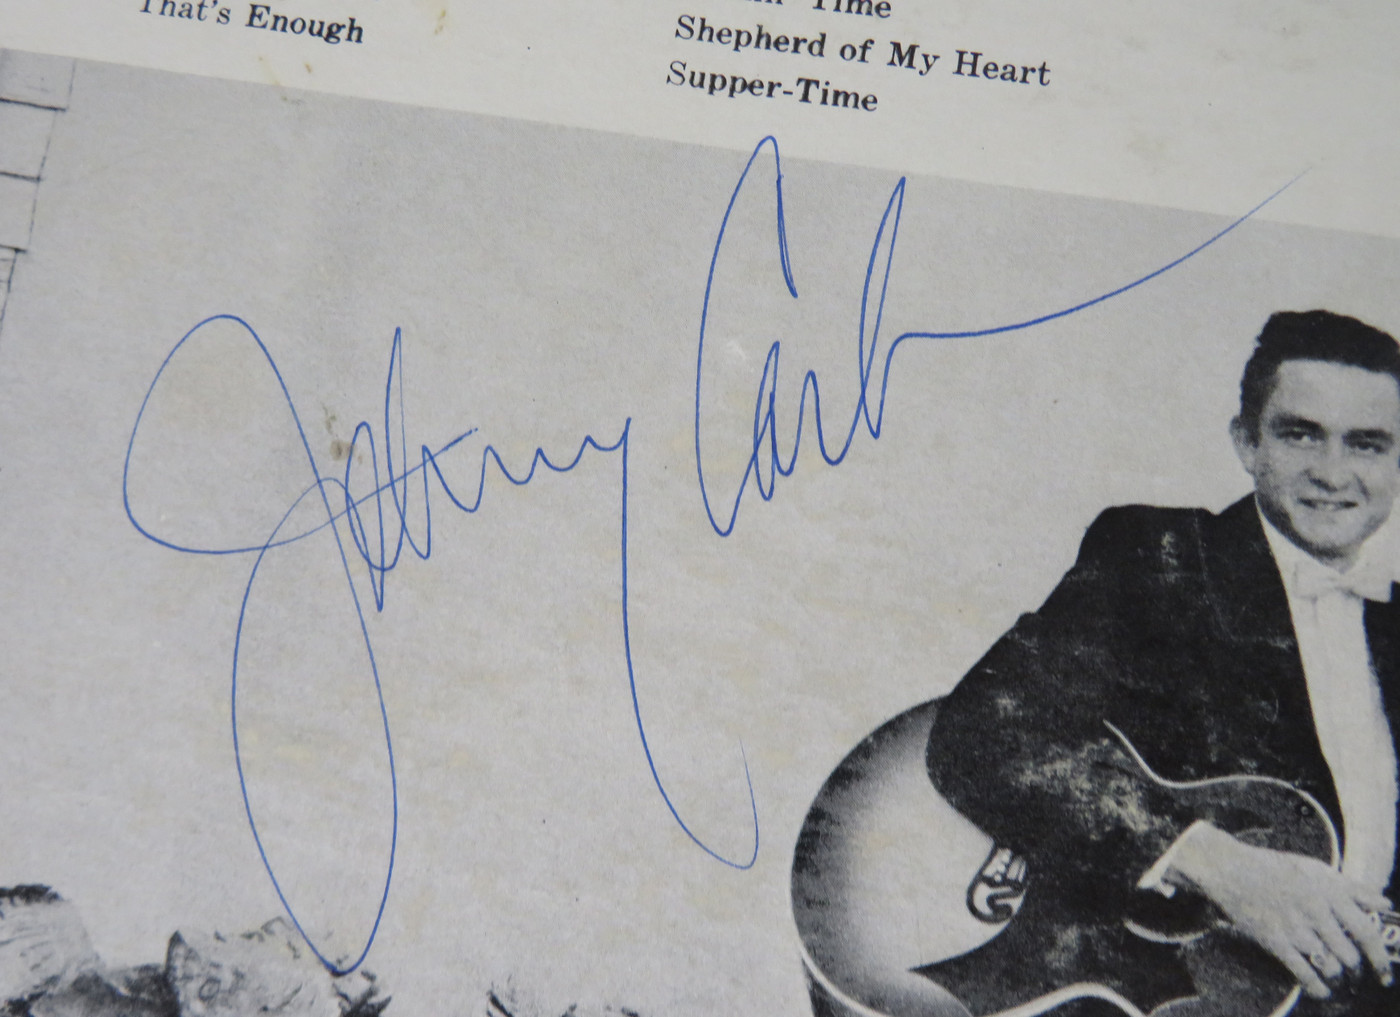 That's Enough
Time
Shepherd of My Heart
Supper-Time
Johnny Cash